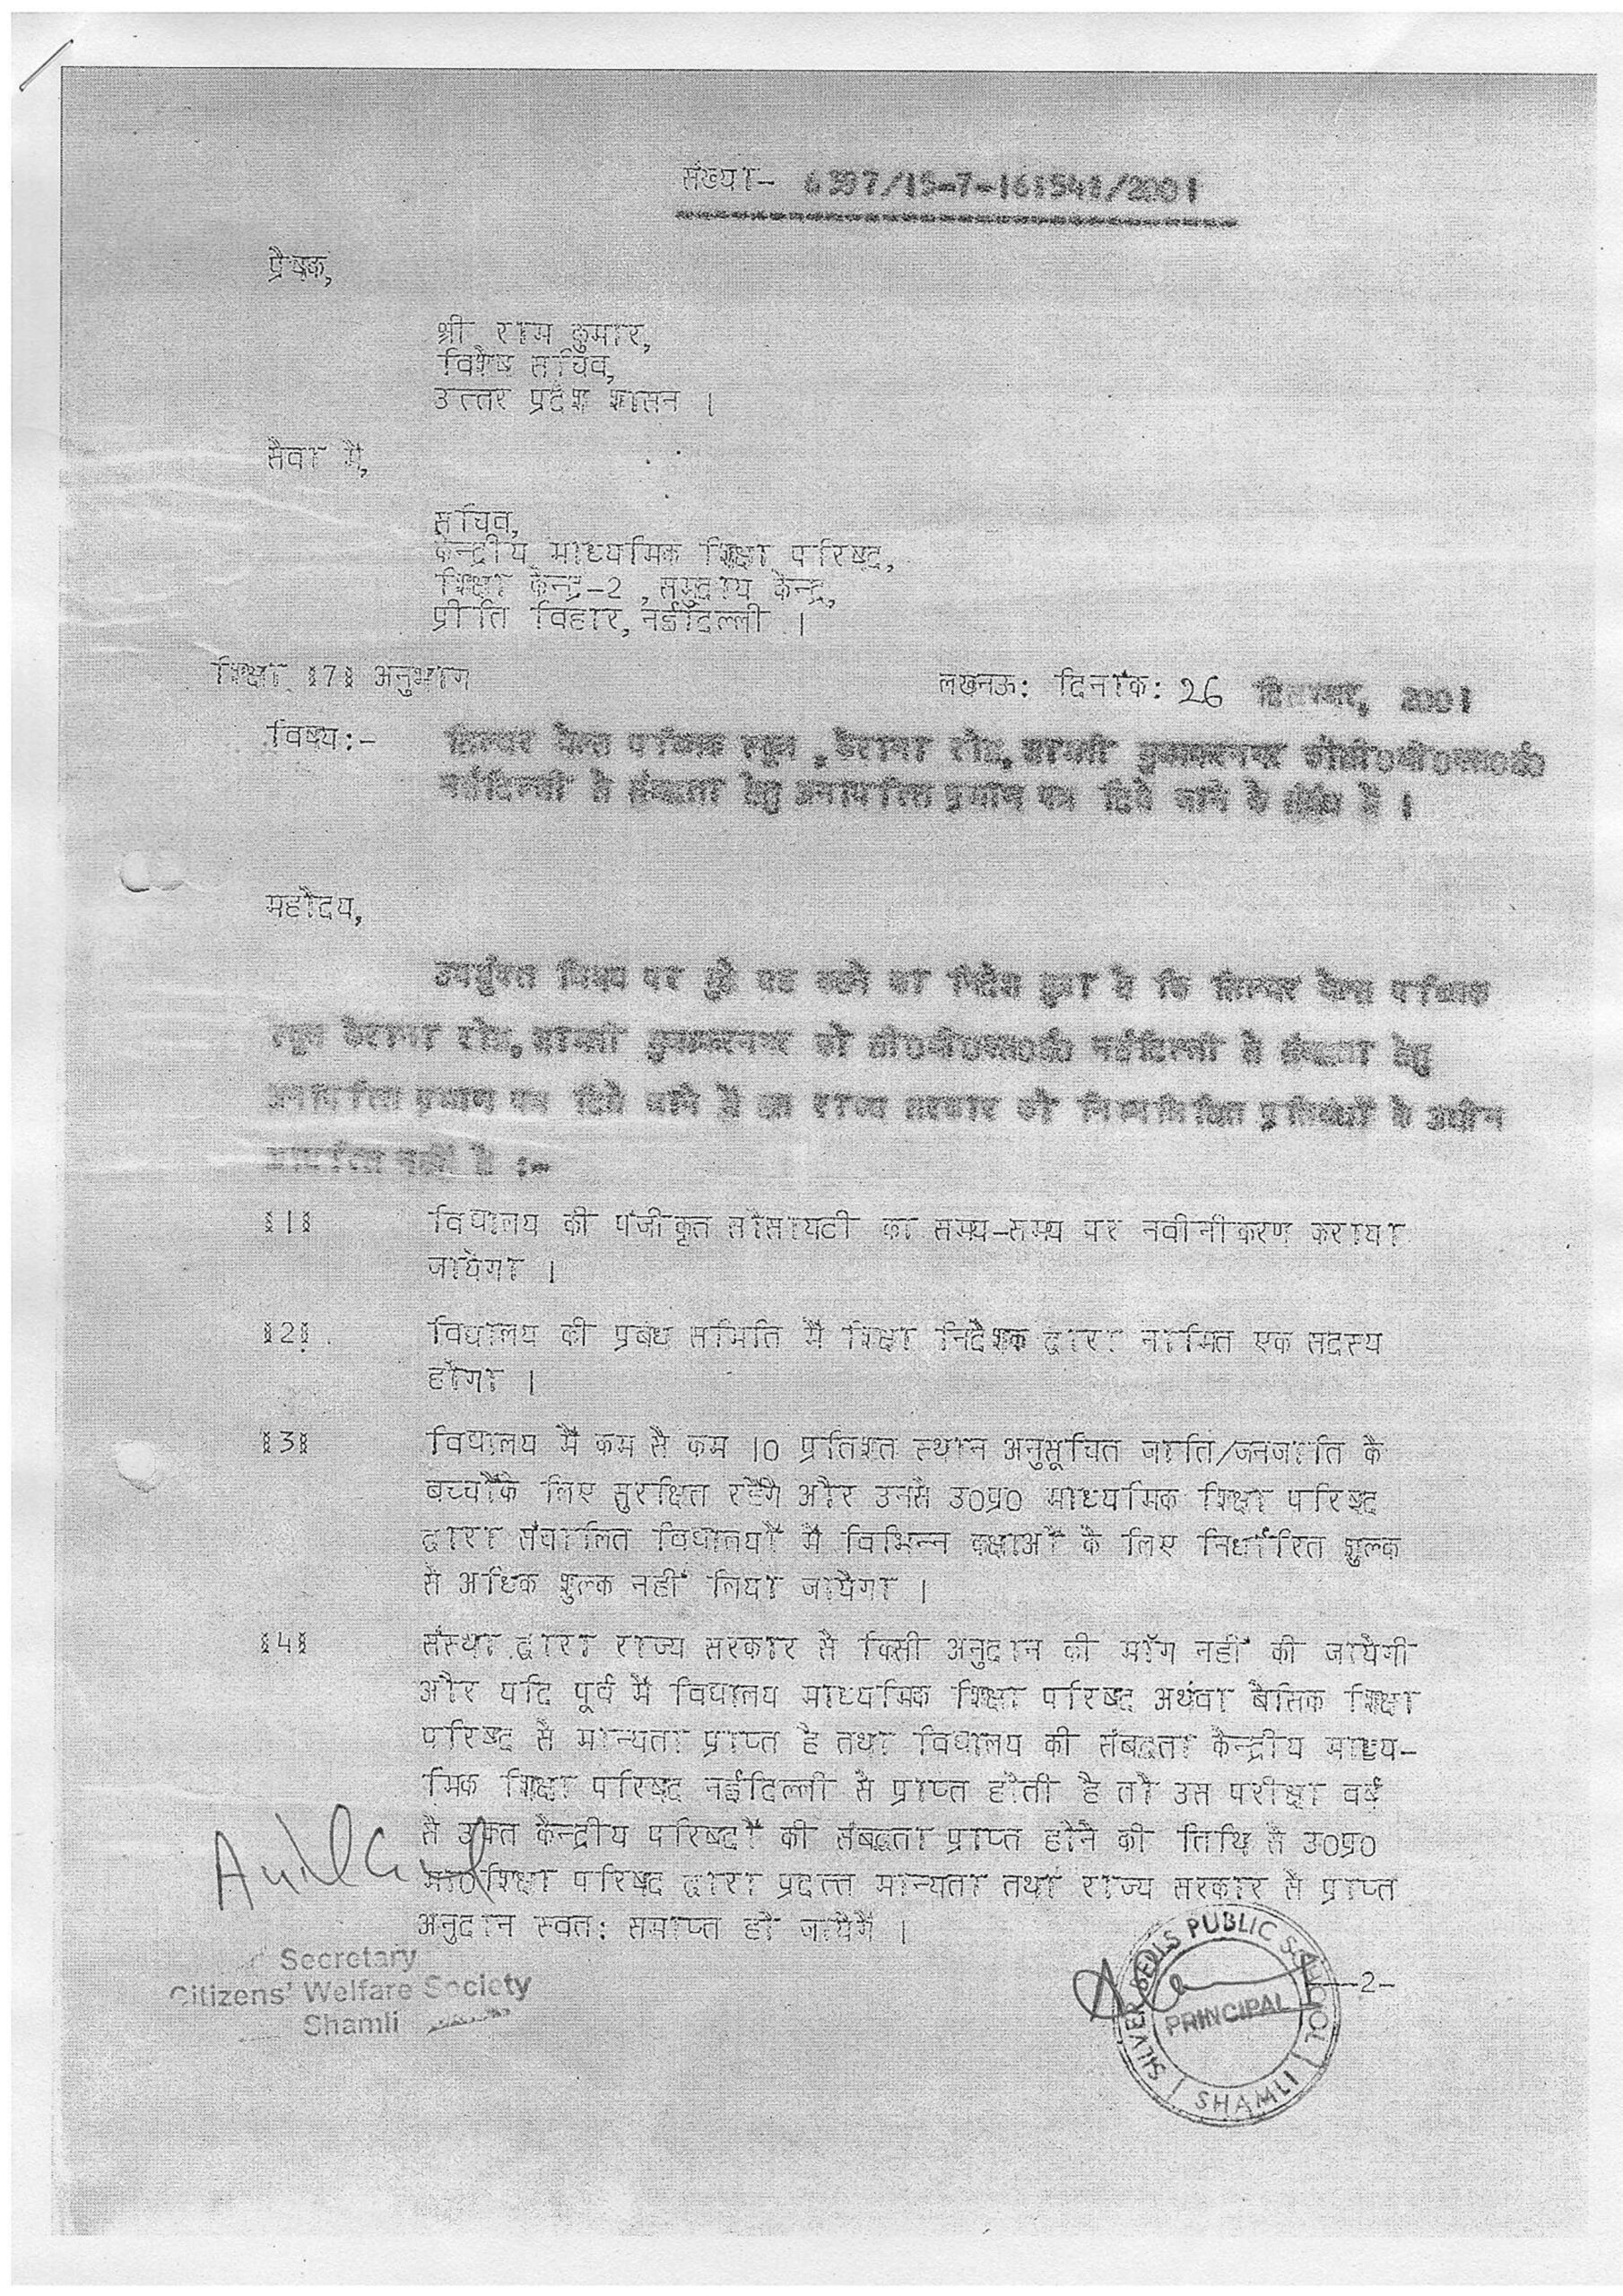 संख्या- 6397/15-7-161541/2001
प्रेषक,
श्री राम कुमार,
विशेष सचिव,
उत्तर प्रदेश शासन ।
सेवा में,
सचिव,
केन्द्रीय माध्यमिक शिक्षा परिषद,
शिक्षा केन्द्र-2 ,समुदाय केन्द्र,
प्रीति विहार, नईदिल्ली ।
शिक्षा §7§ अनुभाग
लखनऊ: दिनांक: 26 2001
विषय:- सिल्वर बेल्स पब्लिक स्कूल , कैराना रोड, शामली मुजफ्फरनगर को सी0बी0एस0ई0
नईदिल्ली से संबद्धता हेतु अनापत्ति प्रमाण पत्र दिये जाने के संबंध में ।
महोदय,
उपर्युक्त विषय पर मुझे यह कहने का निदेश हुआ है कि सिल्वर बेल्स पब्लिक
स्कूल कैराना रोड, शामली मुजफ्फरनगर को सी0बी0एस0ई0 नईदिल्ली से संबद्धता हेतु
अनापत्ति प्रमाण पत्र दिये जाने में इस राज्य सरकार को निम्नलिखित प्रतिबंधों के अधीन
आपत्ति नहीं है :-
§1§ विद्यालय की पंजीकृत सोसायटी का समय-समय पर नवीनीकरण कराया
जायेगा ।
§2§ विद्यालय की प्रबंध समिति में शिक्षा निदेशक द्वारा नामित एक सदस्य
होगा ।
§3§ विद्यालय में कम से कम 10 प्रतिशत स्थान अनुसूचित जाति/जनजाति के
बच्चोंके लिए सुरक्षित रहेंगे और उनसे उ0प्र0 माध्यमिक शिक्षा परिषद
द्वारा संचालित विद्यालयों में विभिन्न कक्षाओं के लिए निर्धारित शुल्क
से अधिक शुल्क नहीं लिया जायेगा ।
§4§ संस्था द्वारा राज्य सरकार से किसी अनुदान की माँग नहीं की जायेगी
और यदि पूर्व में विद्यालय माध्यमिक शिक्षा परिषद अथवा बेसिक शिक्षा
परिषद से मान्यता प्राप्त है तथा विद्यालय की संबद्धता केन्द्रीय माध्य-
मिक शिक्षा परिषद नईदिल्ली से प्राप्त होती है तो उस परीक्षा वर्ष
से उक्त केन्द्रीय परिषदों की संबद्धता प्राप्त होने की तिथि से उ0प्र0
मा0शिक्षा परिषद द्वारा प्रदत्त मान्यता तथा राज्य सरकार से प्राप्त
अनुदान स्वत: समाप्त हो जायेंगे ।
Secretary
Citizens' Welfare Society
Shamli
SILVER BELLS PUBLIC SCHOOL
PRINCIPAL
SHAMLI
---2-